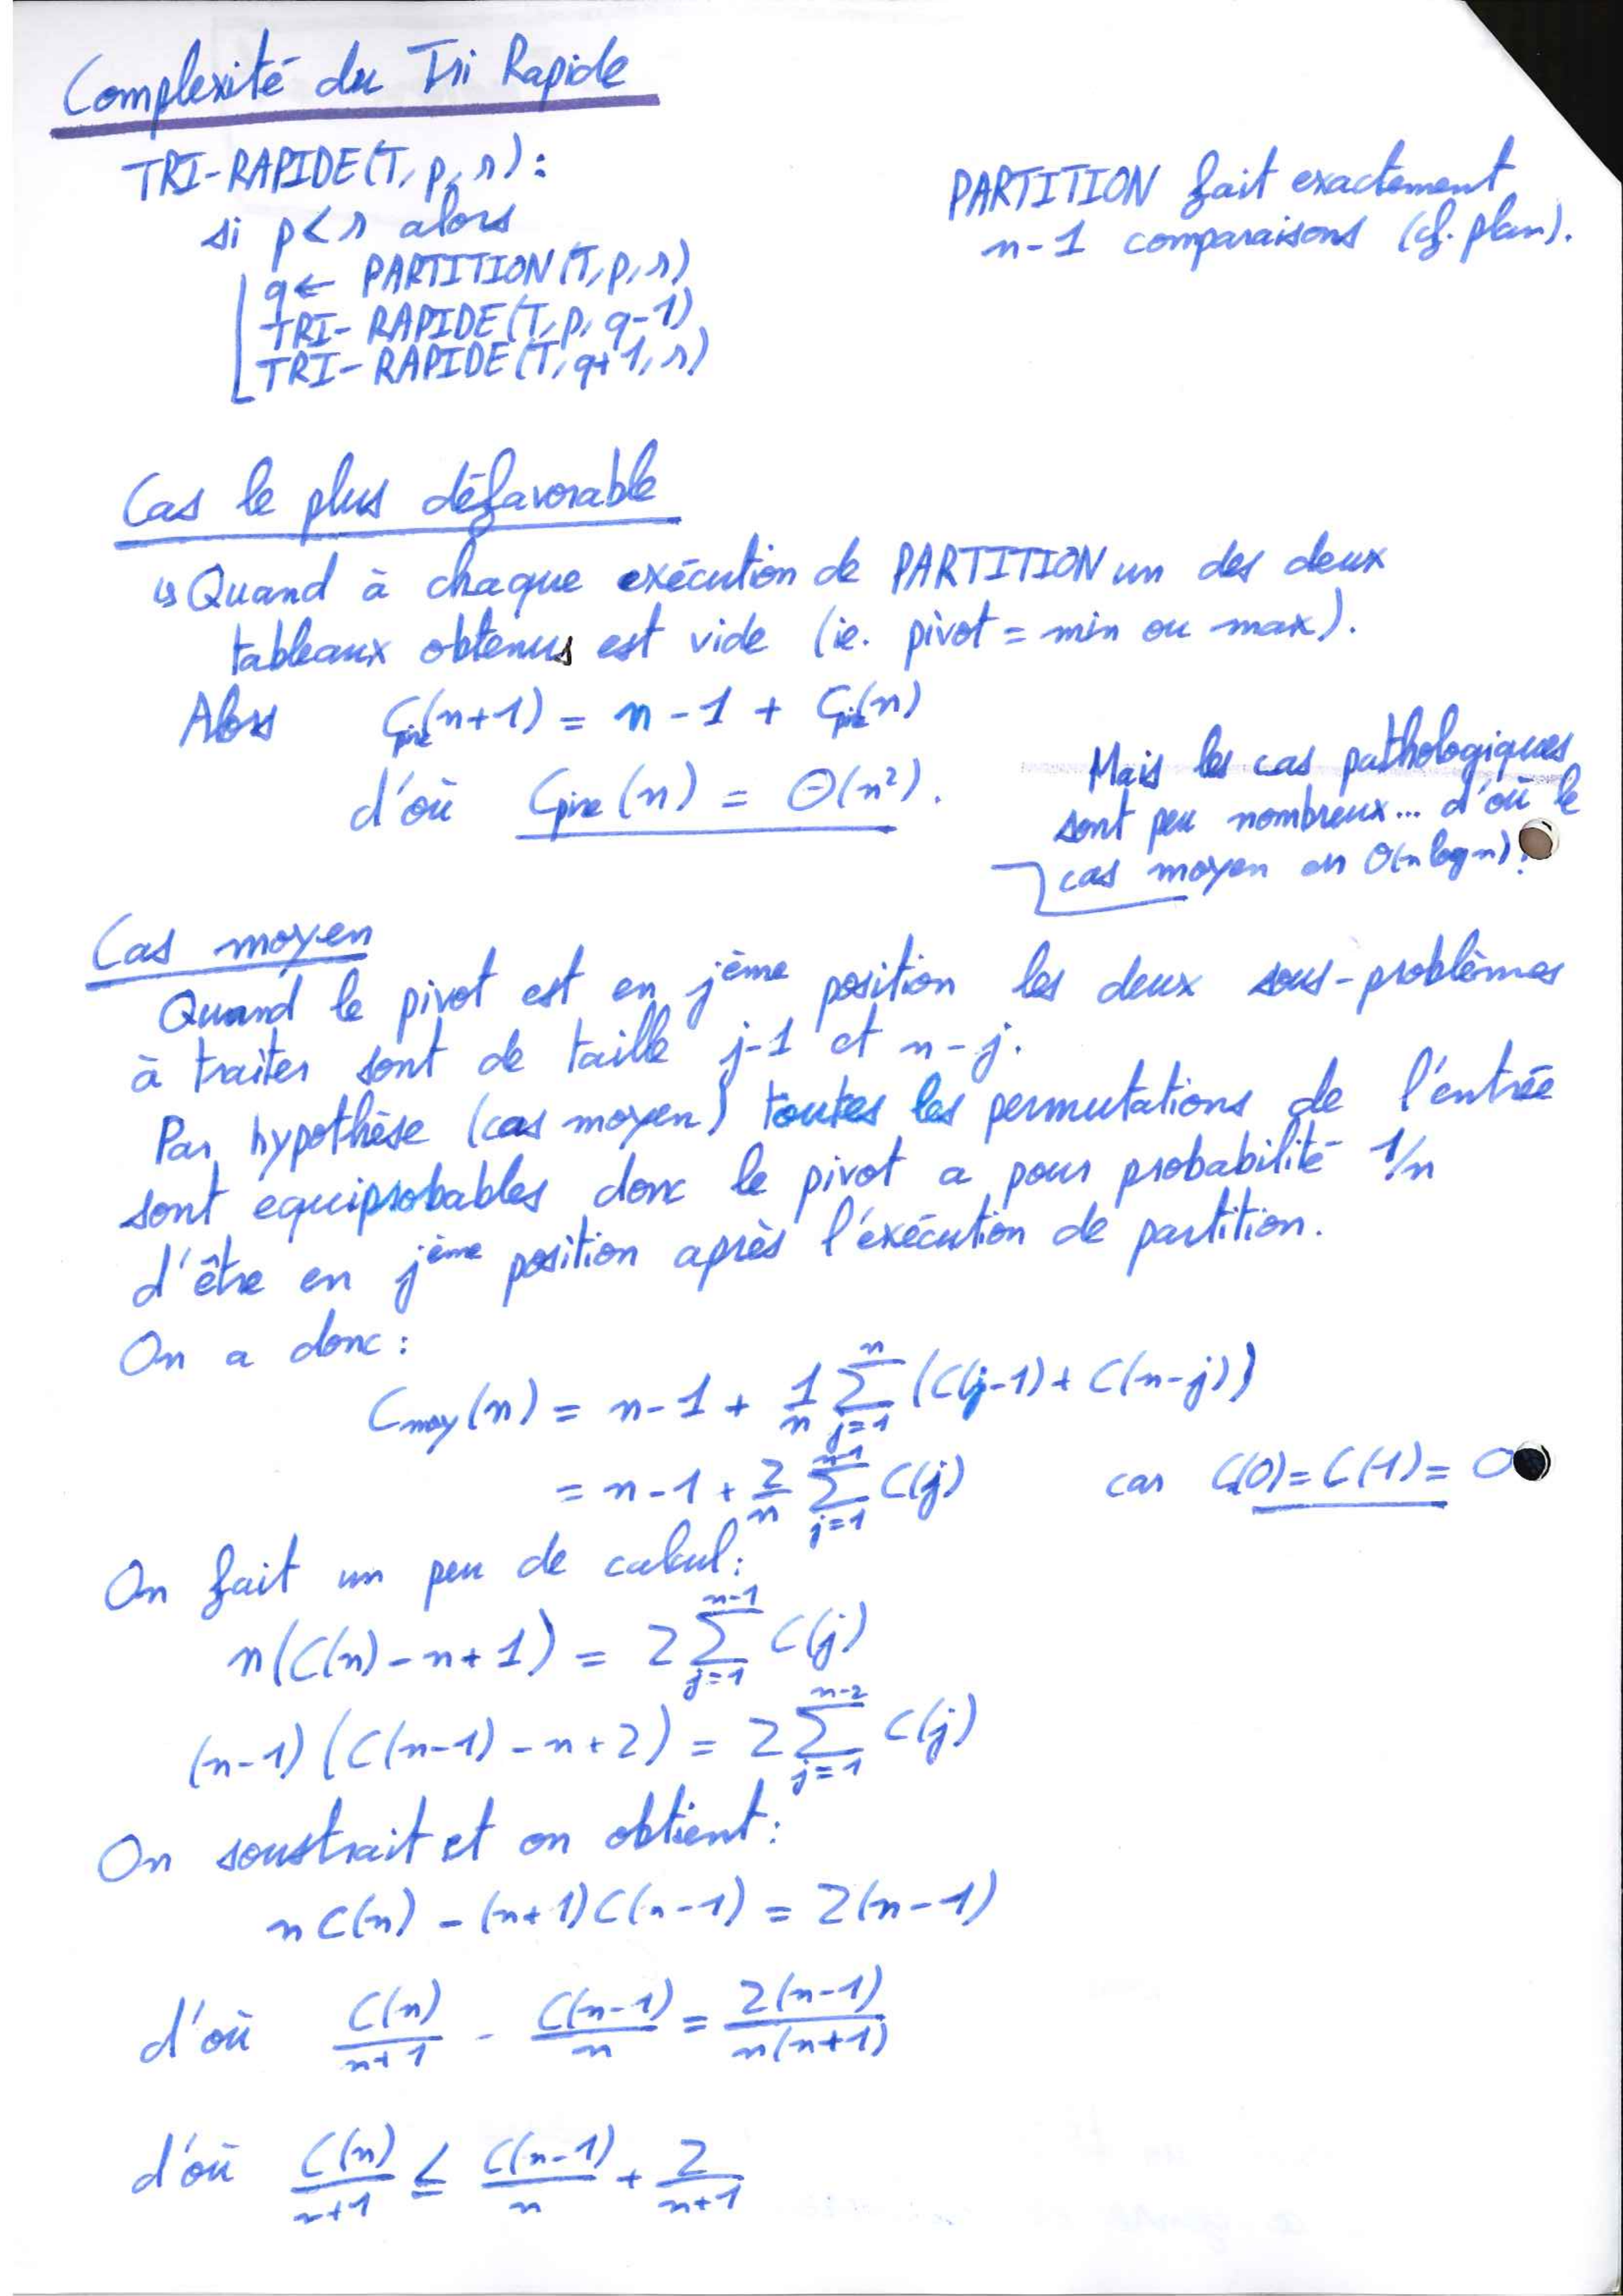 Complexité du Tri Rapide
TRI-RAPIDE(T, p, r):
si p<r alors
q← PARTITION(T,p,r)
TRI-RAPIDE(T,p,q-1)
TRI-RAPIDE(T,q+1,r)
PARTITION fait exactement
n-1 comparaisons (cf. plan).
Cas le plus défavorable
↳ Quand à chaque exécution de PARTITION un des deux
tableaux obtenus est vide (ie. pivot = min ou max).
Alors Cpire(n+1) = n-1 + Cpire(n)
d'où Cpire(n) = Θ(n²).
Mais les cas pathologiques
sont peu nombreux... d'où le
cas moyen en O(n log n)!
Cas moyen
Quand le pivot est en jème position les deux sous-problèmes
à traiter sont de taille j-1 et n-j.
Par hypothèse (cas moyen) toutes les permutations de l'entrée
sont équiprobables donc le pivot a pour probabilité 1/n
d'être en jème position après l'exécution de partition.
On a donc:
Cmoy(n) = n-1 + 1/n ∑_{j=1}^{n} (C(j-1) + C(n-j))
= n-1 + 2/n ∑_{j=1}^{n-1} C(j) car C(0)=C(1)=0
On fait un peu de calcul:
n(C(n)-n+1) = 2 ∑_{j=1}^{n-1} C(j)
(n-1)(C(n-1)-n+2) = 2 ∑_{j=1}^{n-2} C(j)
On soustrait et on obtient:
nC(n) - (n+1)C(n-1) = 2(n-1)
d'où C(n)/(n+1) - C(n-1)/n = 2(n-1)/(n(n+1))
d'où C(n)/(n+1) ≤ C(n-1)/n + 2/(n+1)